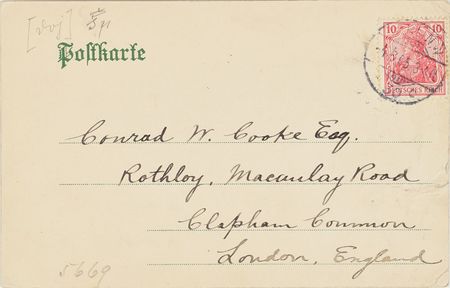 Postkarte
10 10
DEUTSCHES REICH
Conrad W. Cooke Esq.
Rothloy, Macaulay Road
Clapham Common
London, England
5669